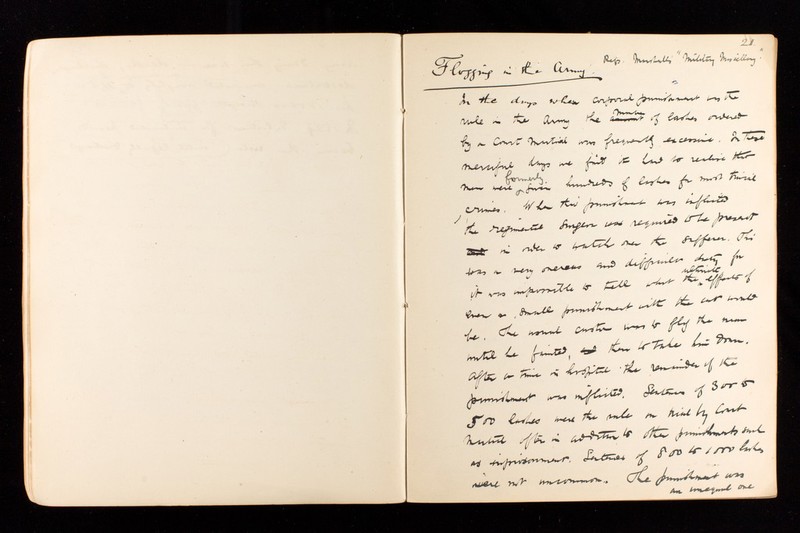 21
Flogging in the Army. Refs. Marshall's "Military Miscellany".
In the days when corporal punishment was the
rule in the Army the number of lashes ordered
by a Court Martial was frequently excessive. In these
merciful days we find it hard to realise that
men were formerly given hundreds of lashes for most trivial
crimes. When this punishment was inflicted
the regimental Surgeon was required to be present
in order to watch over the sufferer. This
was a very onerous and difficult duty for
it was impossible to tell what the ultimate effects of
even a small punishment with the cat would
be. The usual custom was to flog the man
until he fainted, then to take him down.
After a time in hospital the remainder of the
punishment was inflicted. Sentences of 300 to
500 lashes were the rule on trial by Court
Martial often in addition to other punishments such
as imprisonment. Sentences of 800 to 1000 lashes
were not uncommon. The punishment was
an unequal one